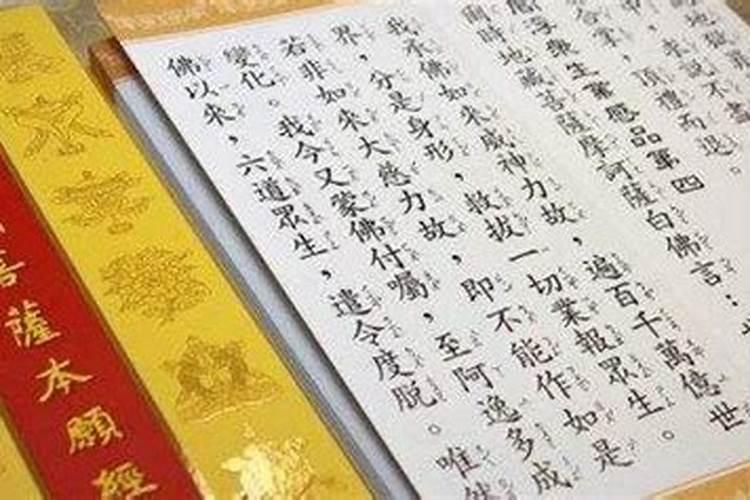 合掌，頂禮而退。
閻浮眾生業感品第四
爾時地藏菩薩摩訶薩白佛言：世
我承佛如來威神力故，遍百千萬億世
界，分是身形，救拔一切業報眾生。
若非如來大慈力故，即不能作如是
變化。我今又蒙佛付囑，至阿逸多成
佛以來，六道眾生，遣令度脫。唯然
菩薩本願經